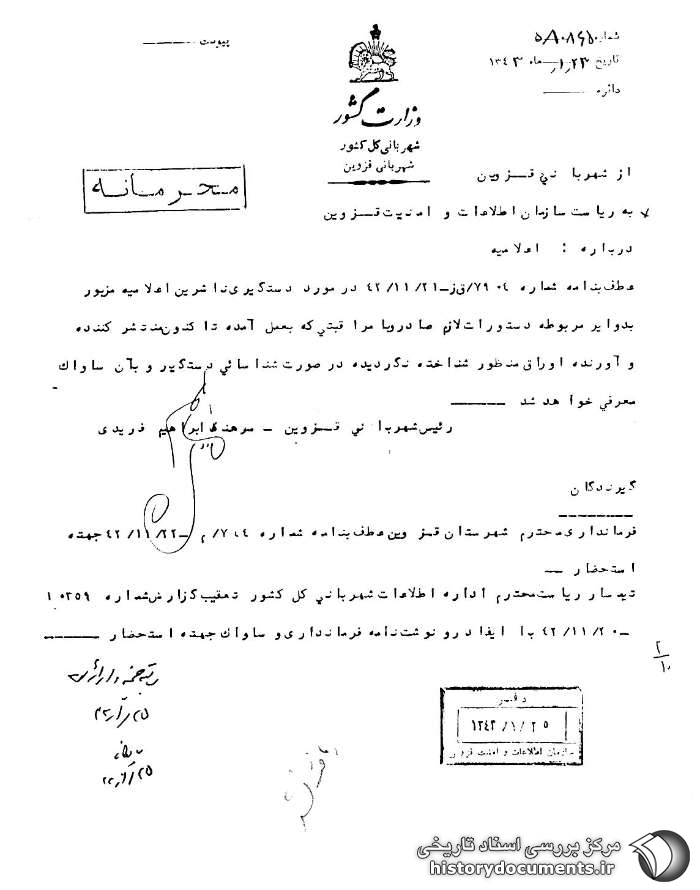 شماره ۵۸۰۸۶۵۰
تاریخ ۱/۲۳ ماه ۱۳۴۳
دائره
پیوست
وزارت کشور
شهربانی کل کشور
شهربانی قزوین
محرمانه
از شهربا ني قـزوین
به ریاست سازمان اطلاعات و امنیت قـزوین
درباره : اعلامیه
عطف بنامه شماره ۷۹۰۴/ق ز-۴۲/۱۱/۲۱ در مورد دستگیری ناشرین اعلامیه مزبور
بدوایر مربوطه دستورات لازم صادر وبا مراقبتي که بعمل آمده تاکنون منتشر کننده
و آورنده اوراق منظور شناخته نگردیده در صورت شناسائي دستگیر و بآن ساواك
معرفي خواهد شد
رئیس شهربا ني قـزوین - سرهنگ ابراهیم فریدی
گیرندگان
فرمانداری محترم شهرستان قزوین عطف بنامه شماره /م -۴۲/۱۱/۲۲ جهته
استحضار
تیمسار ریاست محترم اداره اطلاعات شهرباني کل کشور تعقیب گزارش شماره ۱۰۳۵۹
-۴۲/۱۱/۲۰ با ایفاد رونوشت نامه فرمانداری و ساواك جهته استحضار
۲/۱۰
دفتر
۱۳۴۳/۱/۲۵
سازمان اطلاعات و امنیت قزوین
مرکز بررسی اسناد تاریخی
historydocuments.ir